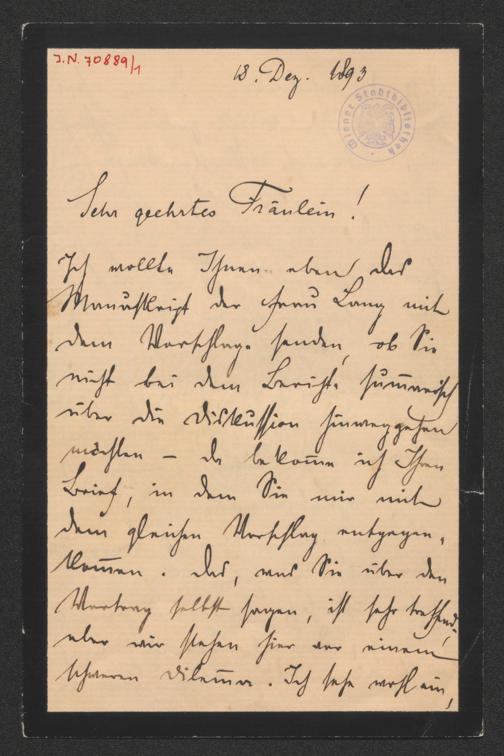 J.N. 70889/1
18. Dez. 1893
Wiener Stadtbibliothek
Sehr geehrtes Fräulein!
Ich wollte Ihnen eben das
Manuskript der Frau Lang mit
dem Vorschlage senden, ob Sie
nicht bei dem Berichte summarisch
über die Diskussion hinweggehen
möchten – da bekom̅e ich Ihren
Brief, in dem Sie mir mit
dem gleichen Vorschlag entgegen-
kom̅en. Das, was Sie über den
Vortrag selbst sagen, ist sehr treffend,
aber wir stehen hier vor einem
schweren Dilem̅a. Ich sehe wohl ein,